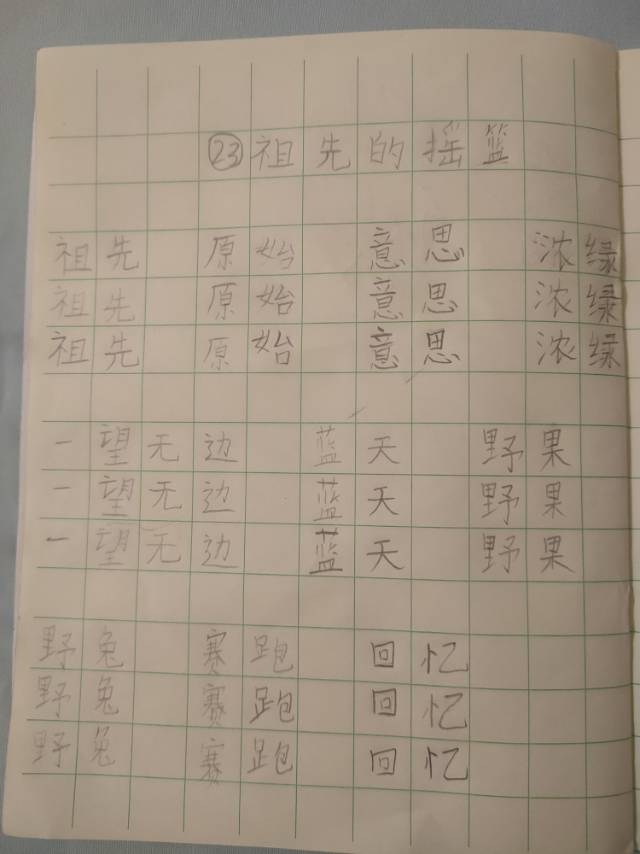 ㉓祖先的摇篮
祖先 原始 意思 浓绿
祖先 原始 意思 浓绿
祖先 原始 意思 浓绿
一望无边 蓝天 野果
一望无边 蓝天 野果
一望无边 蓝天 野果
野兔 赛跑 回忆
野兔 赛跑 回忆
野兔 赛跑 回忆